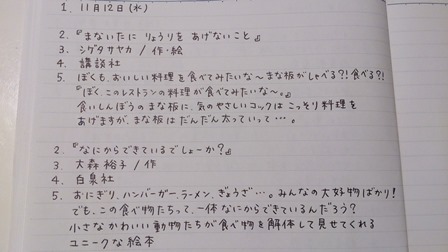 1. 11月12日(水)
2.『まないたに りょうりを あげないこと』
3. シゲタサヤカ / 作・絵
4. 講談社
5. ぼくも、おいしい料理を食べてみたいな〜まな板がしゃべる?!食べる?!
『ぼく、このレストランの料理が食べてみたいな〜。』
食いしんぼうのまな板に、気のやさしいコックはこっそり料理を
あげますが、まな板はだんだん太っていって…。
2.『なにからできているでしょーか?』
3. 大森裕子 / 作
4. 白泉社
5. おにぎり、ハンバーガー、ラーメン、ぎょうざ…。みんなの大好物ばかり!
でも、この食べ物たちって、一体なにからできているんだろう?
小さなかわいい動物たちが食べ物を解体して見せてくれる
ユニークな絵本